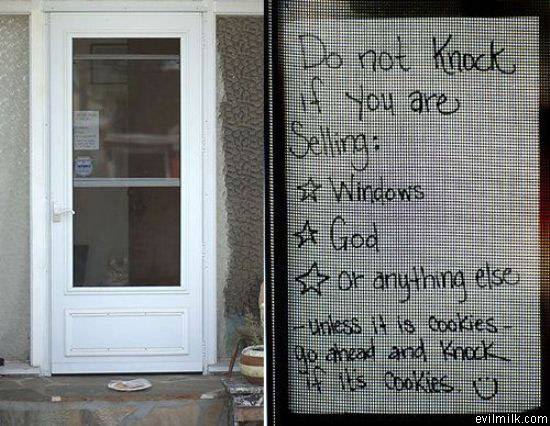 Do not Knock
if you are
Selling:
☆ Windows
☆ God
☆ or anything else
-unless it is cookies-
go ahead and Knock
if its cookies.
evilmilk.com